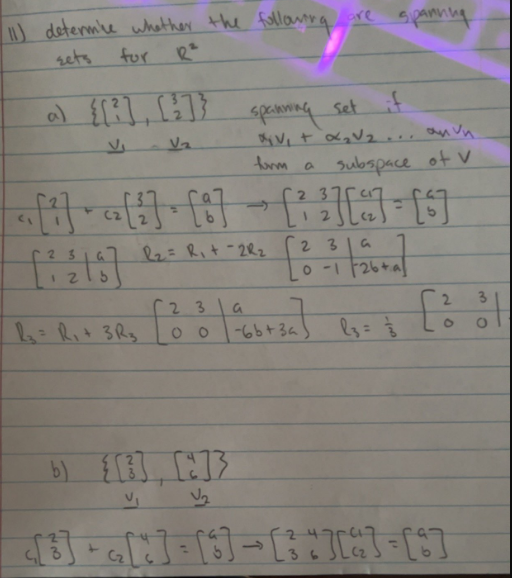 11) determine whether the following are spanning
sets for R²
a) {[2 1], [3 2]} spanning set if
v₁ v₂ α₁v₁ + α₂v₂ ... αnvn
form a subspace of V
c₁[2 1] + c₂[3 2] = [a b] → [2 3 1 2][c₁ c₂] = [a b]
[2 3 | a 1 2 | b] R₂ = R₁ + -2R₂ [2 3 | a 0 -1 | -2b+a]
R₃ = R₁ + 3R₃ [2 3 | a 0 0 | -6b+3a] R₃ = 1/3 [2 3 0 0 |
b) {[2 3], [4 6]}
v₁ v₂
c₁[2 3] + c₂[4 6] = [a b] → [2 4 3 6][c₁ c₂] = [a b]